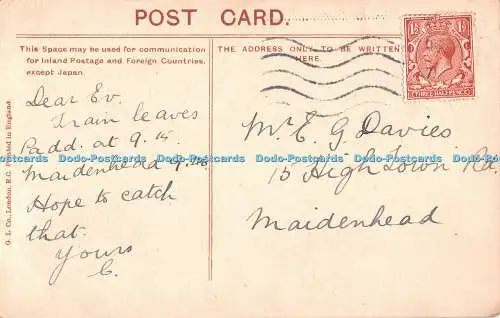 POST CARD.
This Space may be used for communication
for Inland Postage and Foreign Countries,
except Japan.
THE ADDRESS ONLY TO BE WRITTEN
HERE.
G. L. Co., London, E.C. Printed in England
Dear Ev.
Train leaves
Padd. at 9.15
Maidenhead 9.
Hope to catch
that.
Yours
C.
Mr E. G Davies
15 High Town Rd.
Maidenhead
1½ 1½
THREE HALFPENCE
Dodo-Postcards Dodo-Postcards Dodo-Postcards Dodo-Postcards Dodo-Postcards